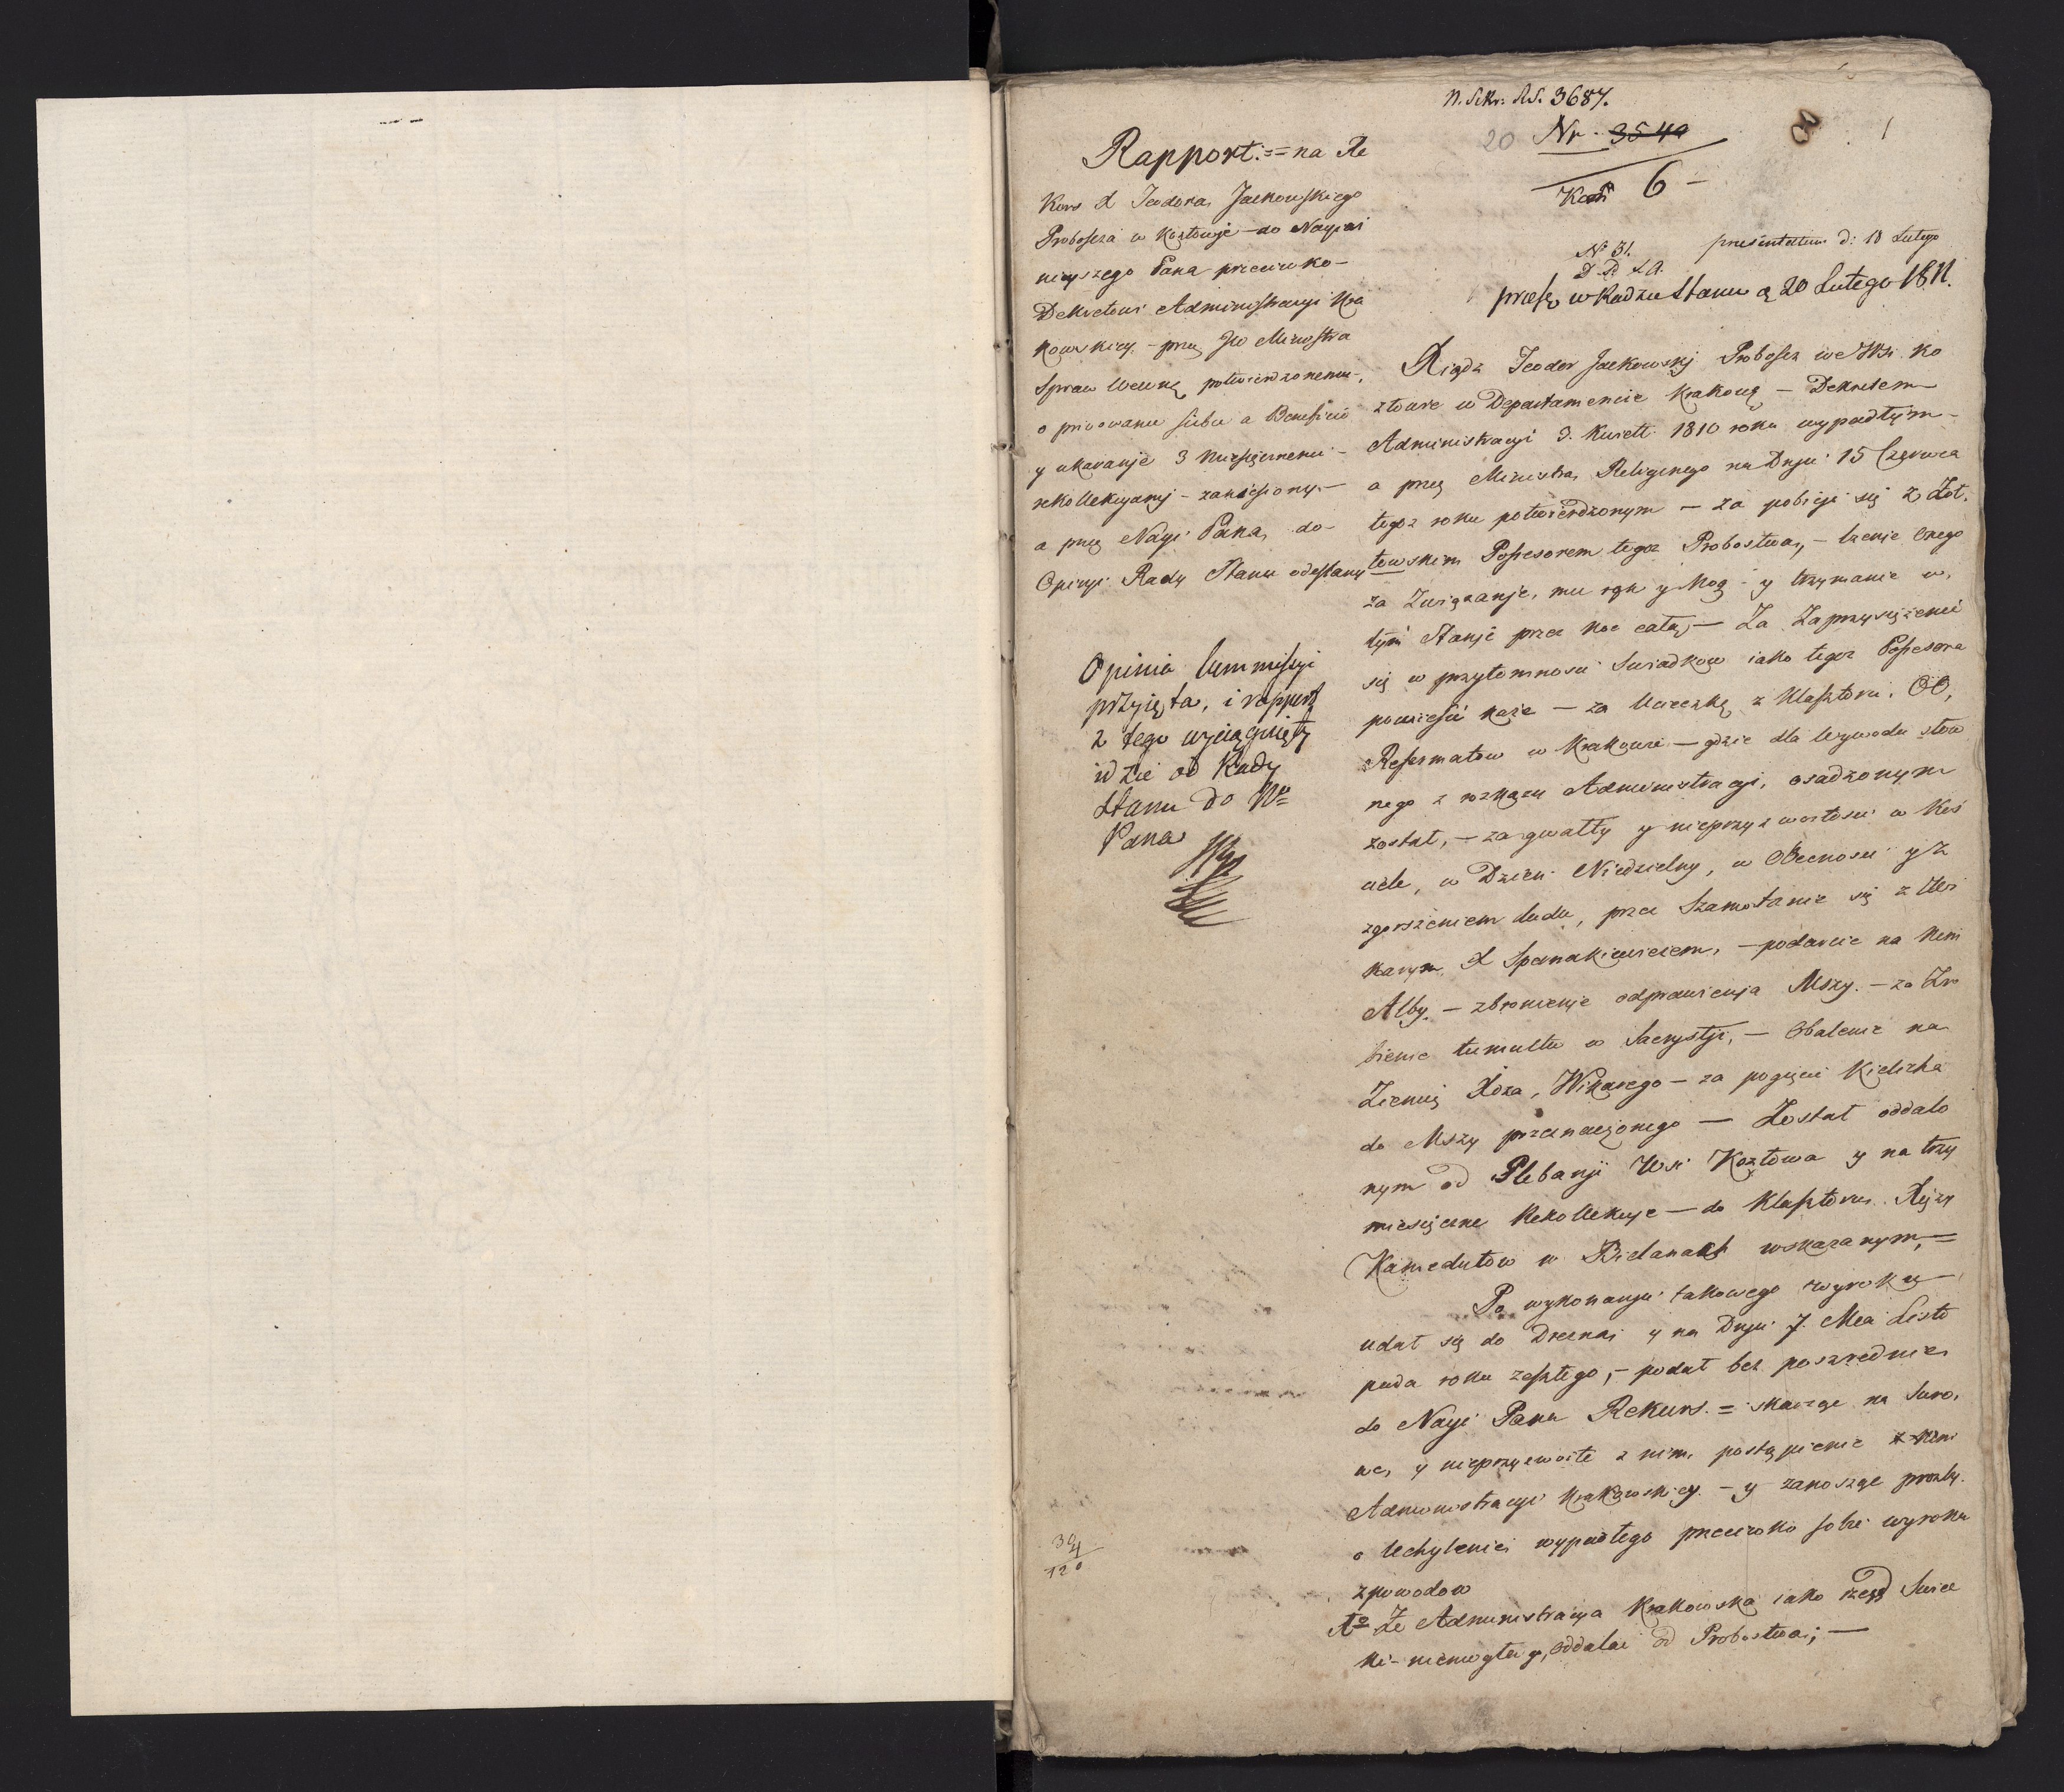 N. Sekr: R.S. 3687.
20 Nr. 3549
6 —
1
Rapport: = na Re
kurs X Teodora Jackowskiego
Proboszcza w Kozłowje do Nayjaś
nieyszego Pana przeciwko —
Dekretowi Administracyi Kra
kowskiey — przez JW Ministra
Spraw Wewnę potwierdzonemu,
o privowaniu siebie a Beneficio
y ukaranje 3 miesięcznemi —
rekollekcyami — zaniesiony —
a przez Nayj. Pana, do
Opinyi Rady Stanu odesłany
Opinia Kommissyi
przyięta, i rapport
z tego wyciągnięty
idzie od Rady
Stanu do No
Pana
No 31.
D. P. L A.
presentatum d: 18 Lutego
press w Radzie Stanu d 20 Lutego 1811.
Xiądz Teodor Jackowski Proboszcz we Wsi Ko
złowie w Departamencie Krakowę — Dekretem
Administracyi 3. Kwiett 1810 roku wypadłym —
a przez Ministra Religynego na Dnju 15 Czerwca
tegoż roku potwierdzonym — za pobicje się z Zót.
towskim Possesorem tegoż Probostwa, — łżenie onego
za Związanje, mu rąk y Nog — y trzymanie w
tym Stanje przez Noc całą, — Za Zaprzysiężenie
się w przytomnosci Swiadkow iako tegoż Possesora
powiesić każe — za Ucieczkę z Klasztoru OO,
Reformatow w Krakowie — gdzie dla Wywodu słow
nego z rozkazu Administracyi, osadzonym
został, — za gwałty y nieprzyzwoitosci w Koś
ciele, w Dzień Niedzielny, w Obecnosci y z
zgorszeniem ludu, przez Szamotanie się z Wi
karym X Spanakiewiczem, — podarcie na Nim
Alby — zbronienje odprawienja Mszy. — za Zro
bienie tumultu w Sacrystji, — Obalenie na
Ziemię Xdza, Wikarego — za pogięcie Kielicha
do Mszy przeznaczonego — Został oddalo
nym od Plebanji Wsi Kozłowa y na trzy
miesięczne Rekollekcyje — do Klasztoru Xięży
Kamedułow w Bielanach wskazanym, =
Po wykonanju takowego wyroku
udał się do Drezna, y na Dnju 7. Mca Listo
pada roku zeszłego, — podał bez posrednie
do Nayj Pana Rekurs. = skarżąc na Suro,
we, y nieprzyzwoite z nim, postąpienie
Administracyi Krakowskiey. — y zanosząc prozby.
o Uchylenie wypadłego przeciwko sobie wyroku
z powodow
1o Że Administracya Krakowska iako rząd Swiec
ki — niemogła go, oddalać od Probostwa; —
30
4
120